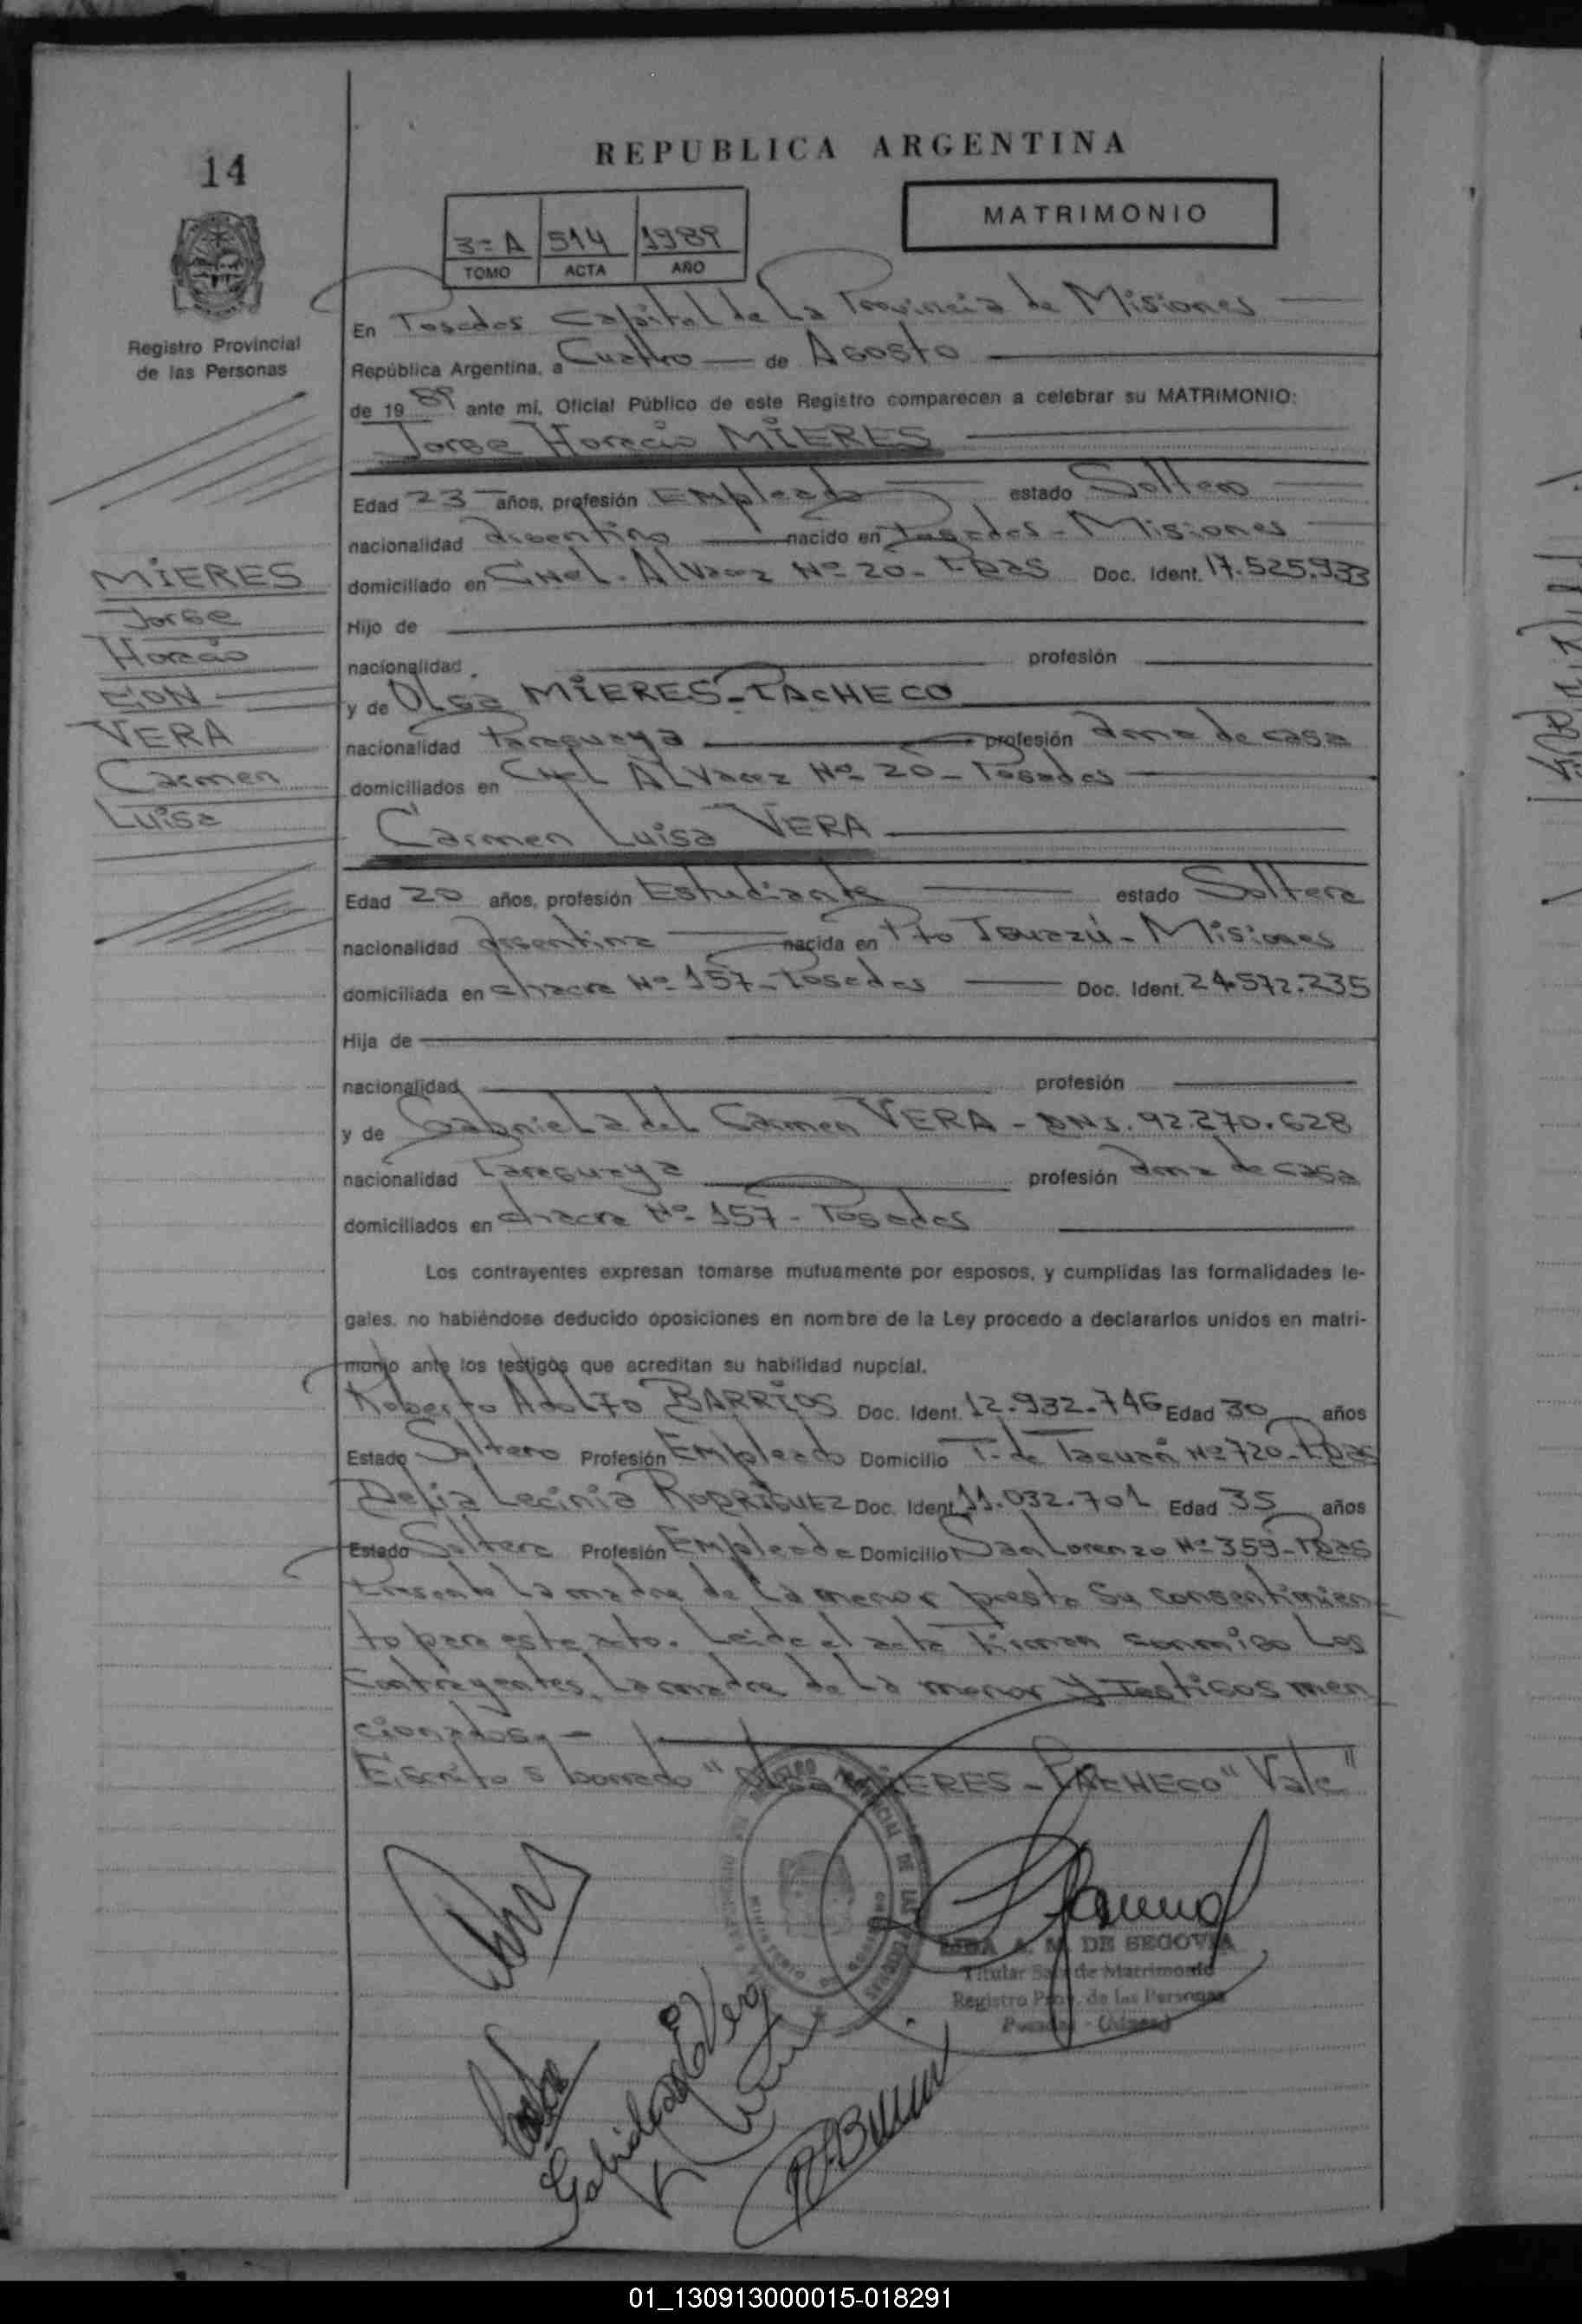 14
REPUBLICA ARGENTINA
MATRIMONIO
3= A 514 1989
TOMO ACTA AÑO
Registro Provincial
de las Personas
En Posadas Capital de La Provincia de Misiones
República Argentina, a Cuatro de Agosto
de 19 89 ante mi, Oficial Público de este Registro comparecen a celebrar su MATRIMONIO:
Jorge Horacio MIERES
Edad 23 años, profesión Empleado estado Soltero
nacionalidad Argentino nacido en Posadas - Misiones
domiciliado en Cnel. Alvarez Nº 20 - Pdas Doc. Ident. 17.525.933
Hijo de
nacionalidad profesión
y de Olga MIERES-PACHECO
nacionalidad Paraguaya profesión ama de casa
domiciliados en Cnel Alvarez Nº 20 - Posadas
MIERES
Jorge
Horacio
CON
VERA
Carmen
Luisa
Carmen Luisa VERA
Edad 20 años, profesión Estudiante estado Soltera
nacionalidad Argentina nacida en Pto Iguazú - Misiones
domiciliada en chacra Nº 157 - Posadas Doc. Ident. 24.572.235
Hija de
nacionalidad profesión
y de Gabriela del Carmen VERA - DNI. 92.270.628
nacionalidad Paraguaya profesión ama de casa
domiciliados en chacra Nº 157 - Posadas
Los contrayentes expresan tomarse mutuamente por esposos, y cumplidas las formalidades le-
gales, no habiéndose deducido oposiciones en nombre de la Ley procedo a declararlos unidos en matri-
monio ante los testigos que acreditan su habilidad nupcial.
Roberto Adolfo BARRIOS Doc. Ident. 12.932.746 Edad 30 años
Estado Soltero Profesión Empleado Domicilio T. de Tacuarí Nº 720 - Pdas
Delia Lecinia RODRIGUEZ Doc. Ident. 11.032.701 Edad 35 años
Estado Soltera Profesión Empleada Domicilio San Lorenzo Nº 359 - Pdas
Presente La madre de La menor presta su consentimien
to para este acto. Leida el acta Firman conmigo Los
Contrayentes, La madre de La menor y Testigos men
cionados. -
Escrito s borrado "Olga MIERES - PACHECO" Vale"
A. M. DE SEGOVIA
Titular de Matrimonio
Registro Prov. de las Personas
Gabriela Vera
01_130913000015-018291